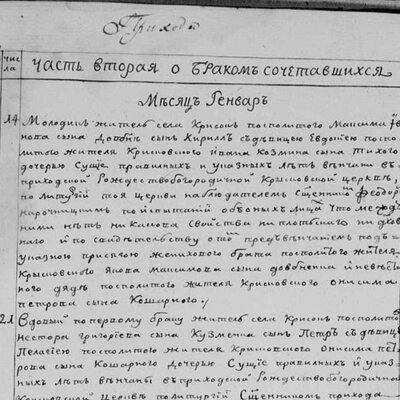 Приходъ
числа
Часть вторая о бракомъ сочетавшихся
Мѣсяцъ Генварь
14 Молодикъ житель села Крисокъ посполитого Максима
нова сына сынъ Кириллъ съ дѣвицею Евдокіею поспо
литого жителя Крисковского Ивана Козмина сына Тихого
дочерью Сущіе правилныхъ и указныхъ лѣтъ вѣнчани въ
приходской Рождествобогородичной Крисковской церквѣ,
по литургіи тоя церкви наблюдателемъ Сщенникомъ Феодоро
нарочитимъ по испытаніи обоюныхъ лицъ что между
ними нѣтъ никакова свойства ни плотского ни духов
наго и по свидѣтельству о томъ предъ вѣнчаніемъ подъ
указною присягою женихового брата посполитого жителя
Крисковского Якова Максимова сына и невѣстн
ного дядѣ посполитого жителя Крисковского Онисима
Петрова сына Кошарного
21 Вдовый по первому браку житель села Крисокъ посполитого
Нестора Григоріева сына Кузменка сынъ Петръ съ дѣвицею
Пелагіею посполитого жителя Крисковского Онисима Пет
рова сына Кошарного дочерью Сущіе правилныхъ и указ
ныхъ лѣтъ вѣнчани въ приходской Рождествобогородичной
Крисковской церквѣ по литургіи Сщенникомъ прихода